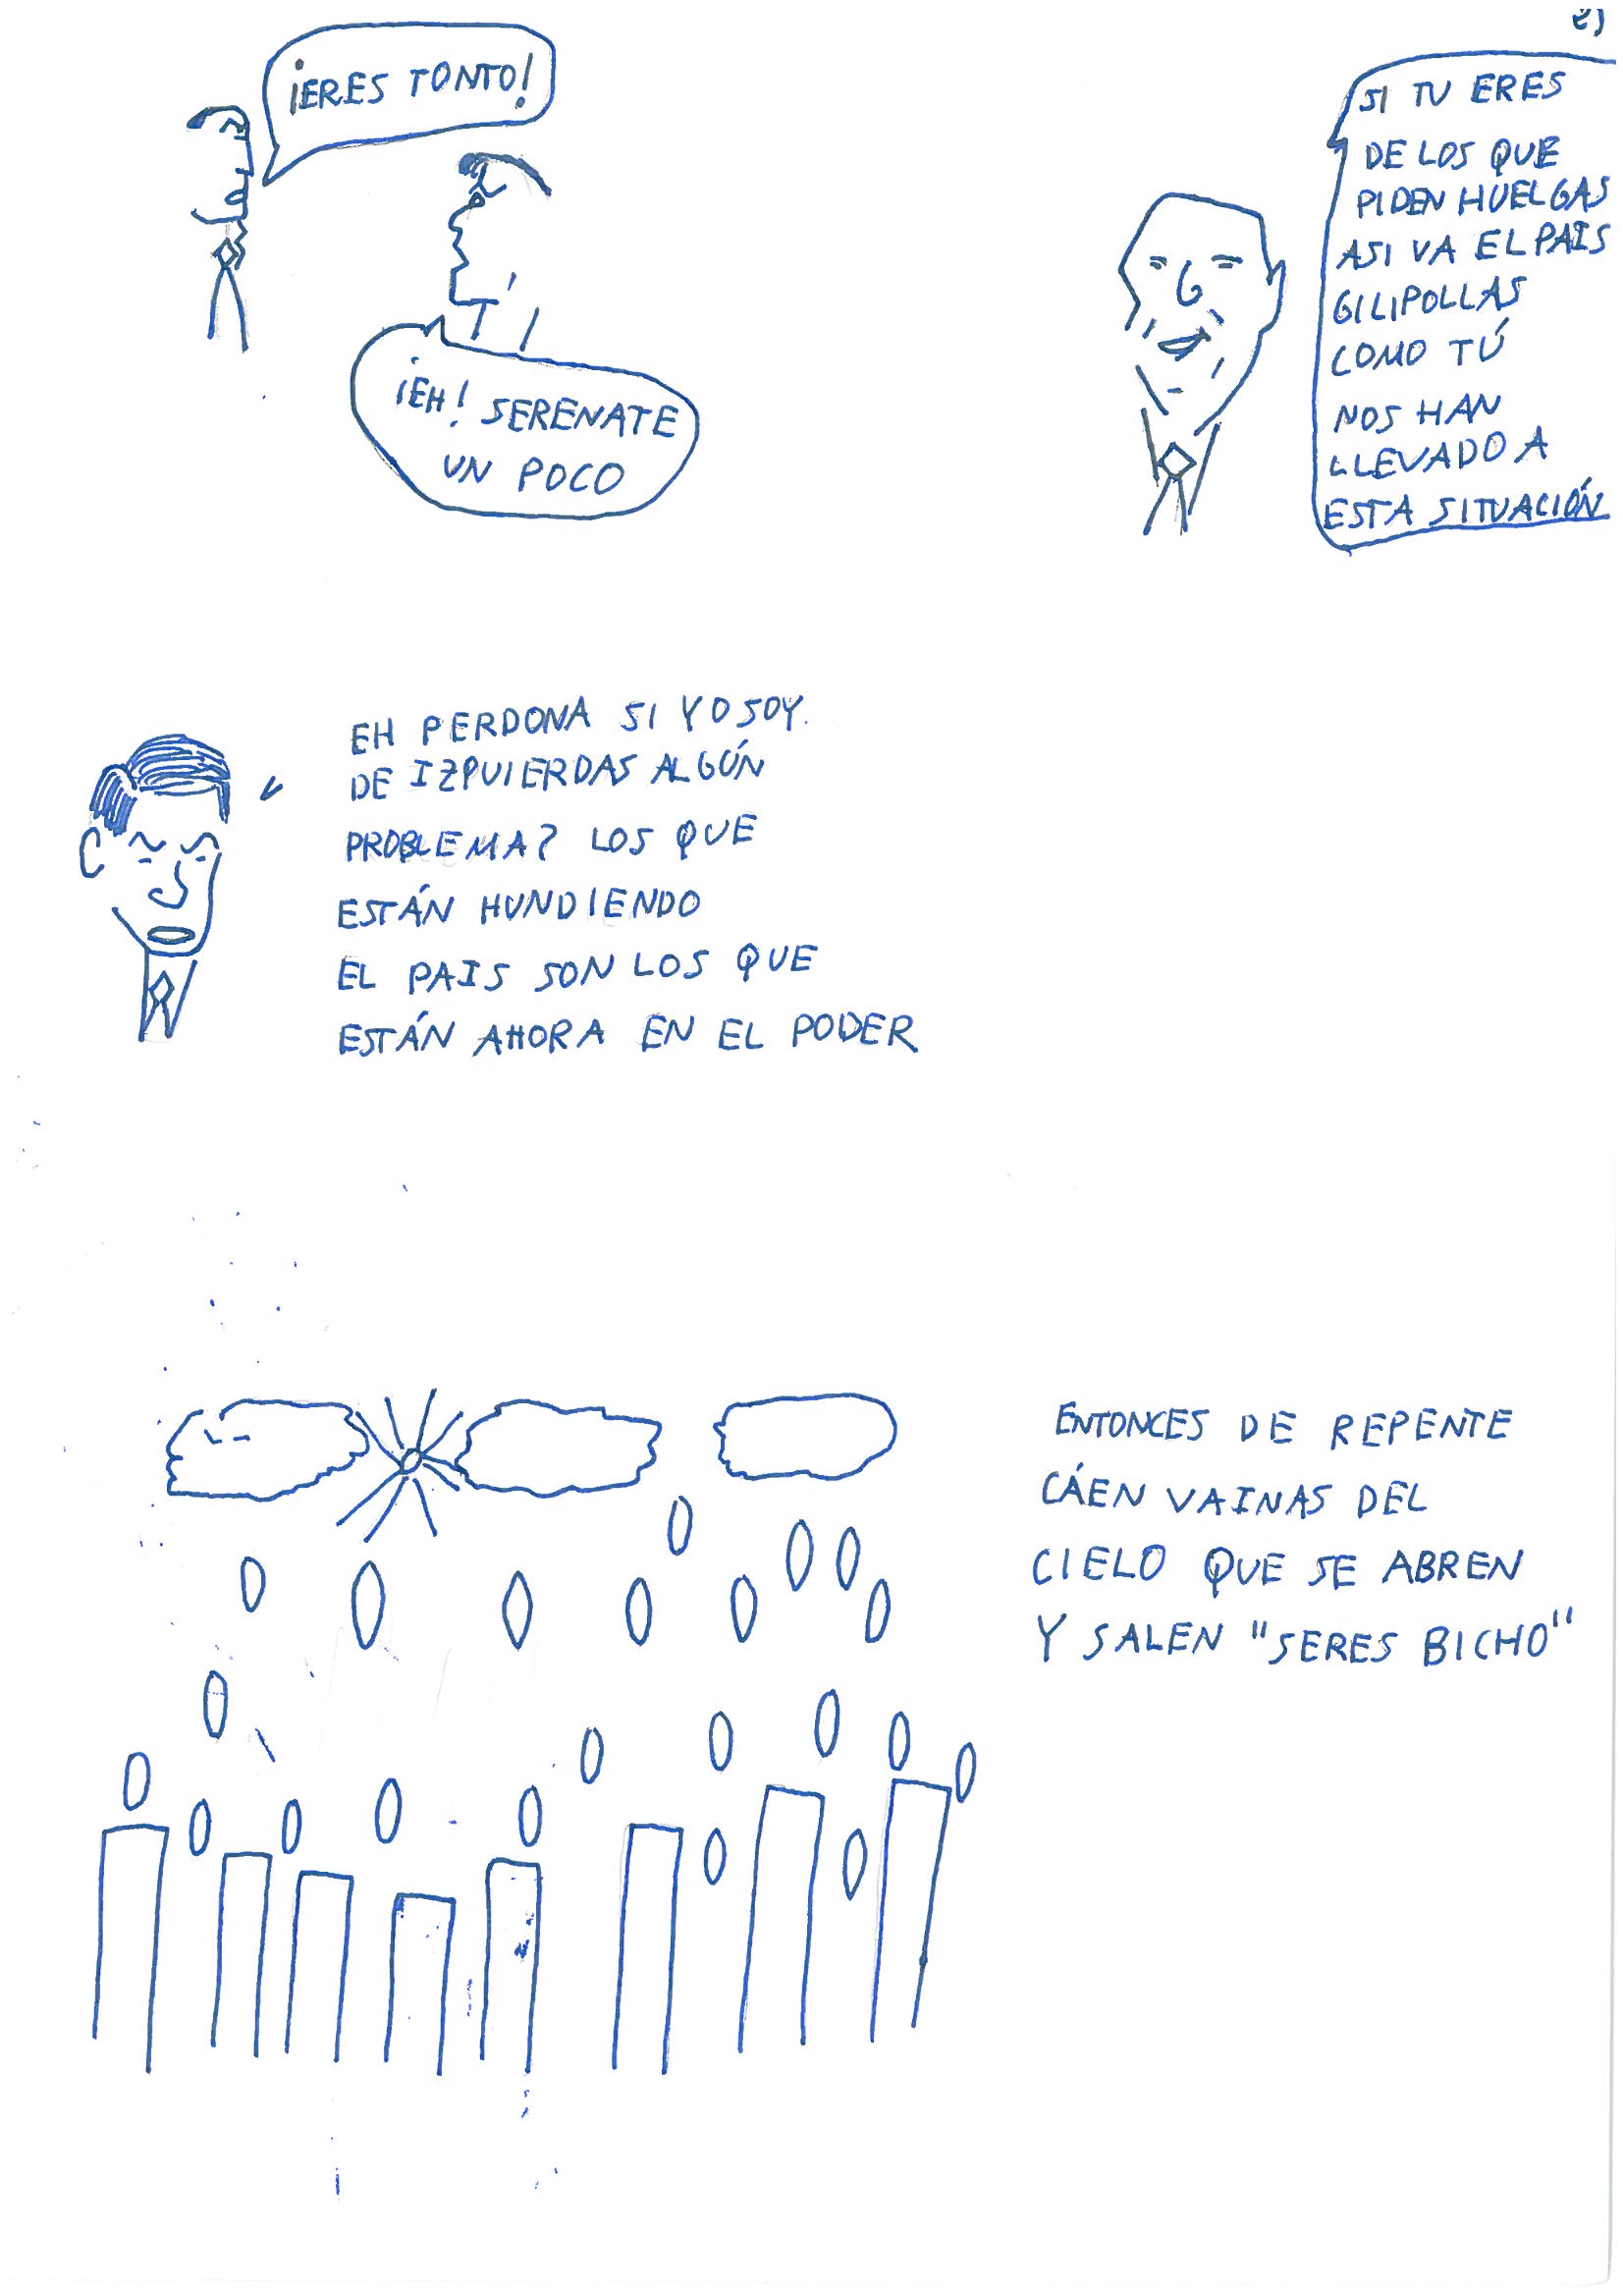 ¡ERES TONTO!
¡EH! SERENATE
UN POCO
SI TU ERES
DE LOS QUE
PIDEN HUELGAS
ASI VA EL PAIS
GILIPOLLAS
COMO TÚ
NOS HAN
LLEVADO A
ESTA SITUACIÓN
EH PERDONA SI YO SOY.
DE IZQUIERDAS ALGÚN
PROBLEMA? LOS QUE
ESTÁN HUNDIENDO
EL PAIS SON LOS QUE
ESTÁN AHORA EN EL PODER
ENTONCES DE REPENTE
CÁEN VAINAS DEL
CIELO QUE SE ABREN
Y SALEN "SERES BICHO"